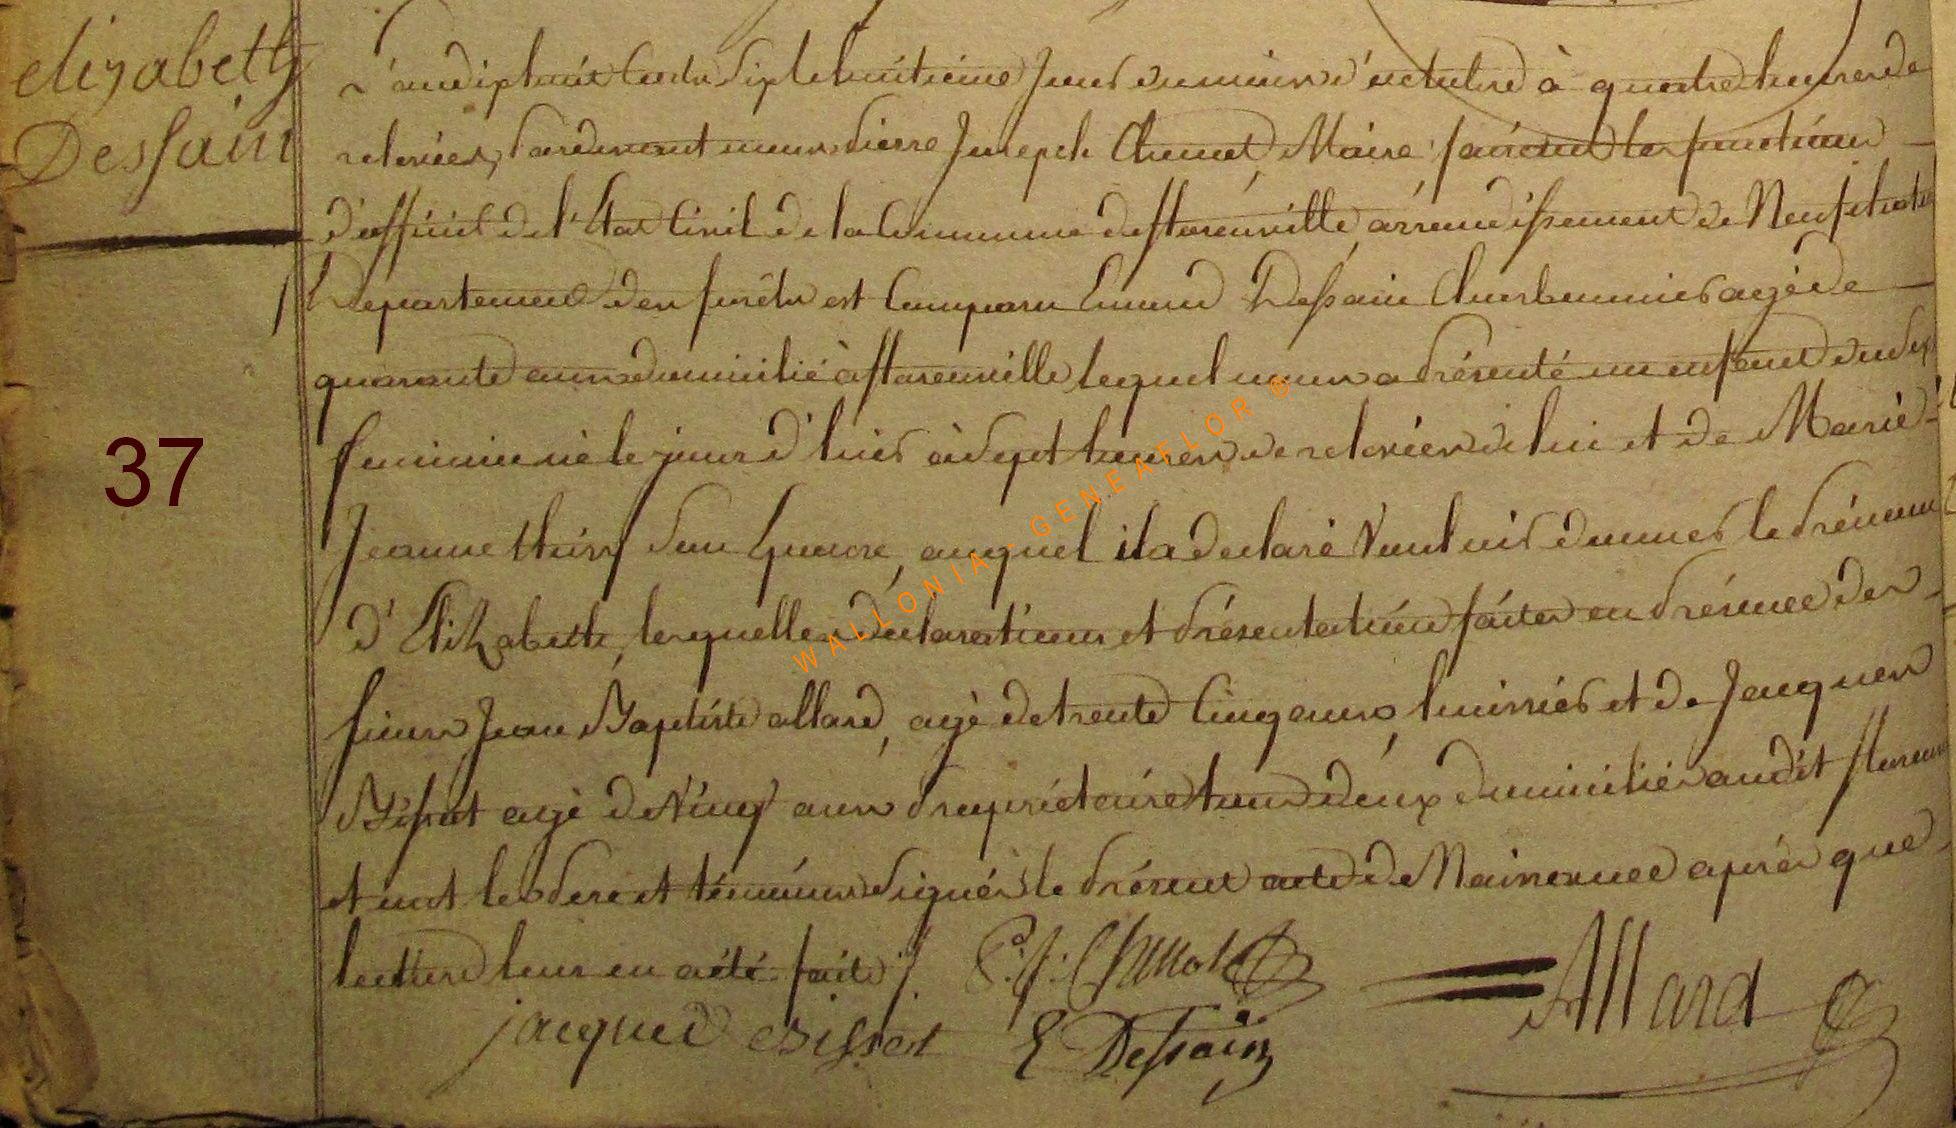 elizabeth
Dessain
37
L'an dix huit cent sept le huitieme jour du mois d'octobre à quatre heures de
relevées, pardevant nous Pierre Joseph Maire faisant les fonctions
d'officier de l'Etat Civil de la Commune de florenville, arrondissement de Neufchateau
Departement des forêts est Comparu Dessain Charbonnier agé de
quarante ans domicilié à florenville, lequel nous a présenté un enfant du sexe
feminin né le jour d'hier à sept heures de relevées de lui et de Marie
Jeanne son Epouse, auquel il a declaré vouloir donner le prénom
d'Elizabeth, lesquelles declarations et présentation faites en présence des
sieurs Jean Baptiste allard, agé de trente Cinq ans, huissier et de Jacques
Bissot agé de ans propriétaire tous deux domiciliés audit florenville
et ont les pere et témoins signés le présent acte de Naissance après que
lecture leur en a été faite ./.
P. J. Chenot
Allard
jacques Bissot
E Dessain
WALLONIA - GENEAFLOR ©